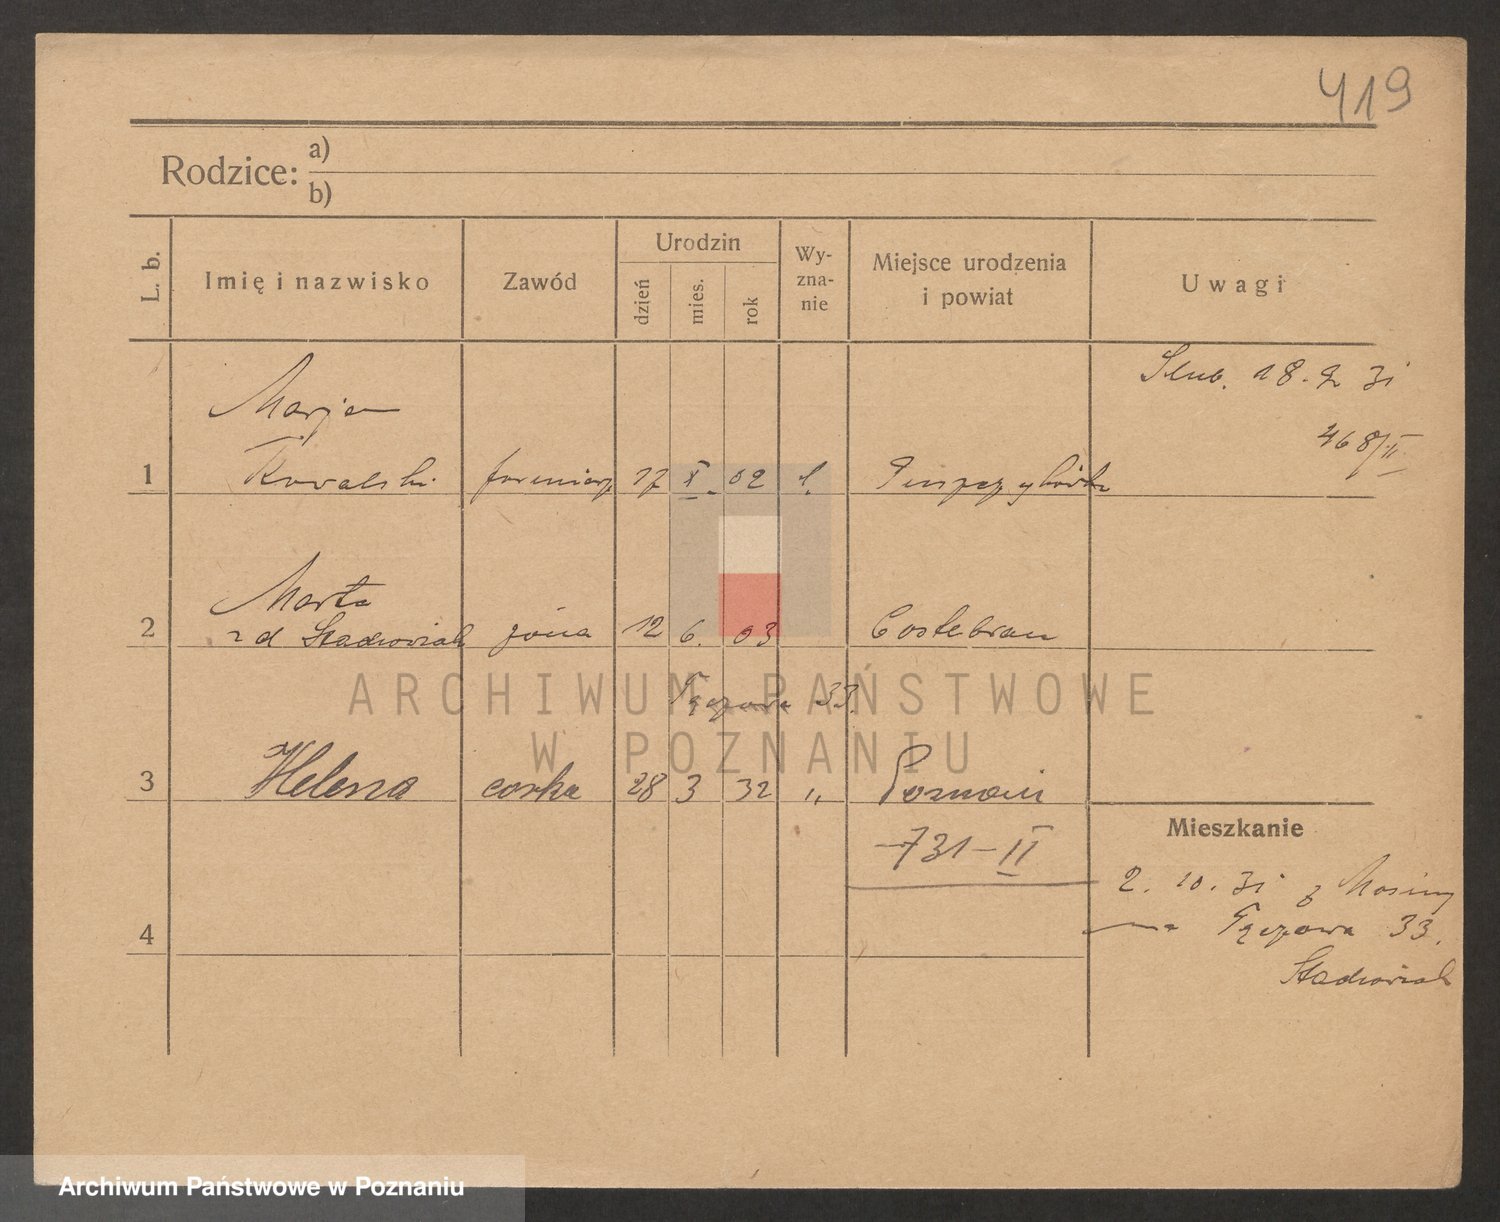 419
Rodzice: a)
b)
L. b.
Imię i nazwisko
Zawód
Urodzin
dzień
mies.
rok
Wy-
zna-
nie
Miejsce urodzenia
i powiat
Uwagi
Ślub. 18. 31
468/II
Marja
1 Kowalski 17 X. 02
Marta
2 zd żona 12 6. 03 Costebrau
Tęczowa 33.
3 Helena corka 28 3 32 " Poznań
-731-II
4
Mieszkanie
2. 10. 31 z Mosiny
na Tęczowa 33.
ARCHIWUM PAŃSTWOWE
W POZNANIU
Archiwum Państwowe w Poznaniu